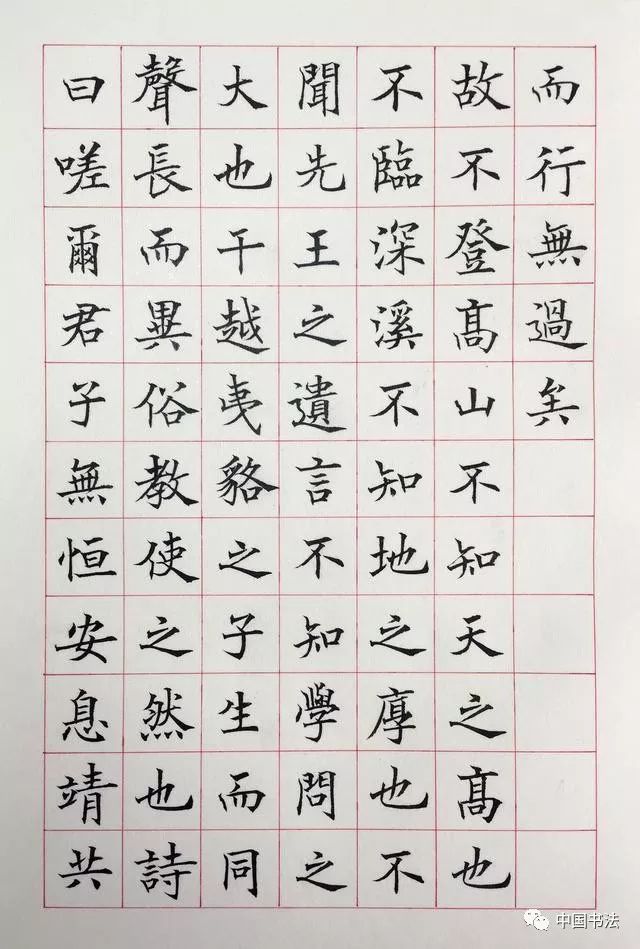 而行無過矣
故不登髙山不知天之髙也
不臨深溪不知地之厚也不
聞先王之遺言不知學問之
大也干越夷貉之子生而同
聲長而異俗教使之然也詩
曰嗟爾君子無恒安息靖共
中国书法